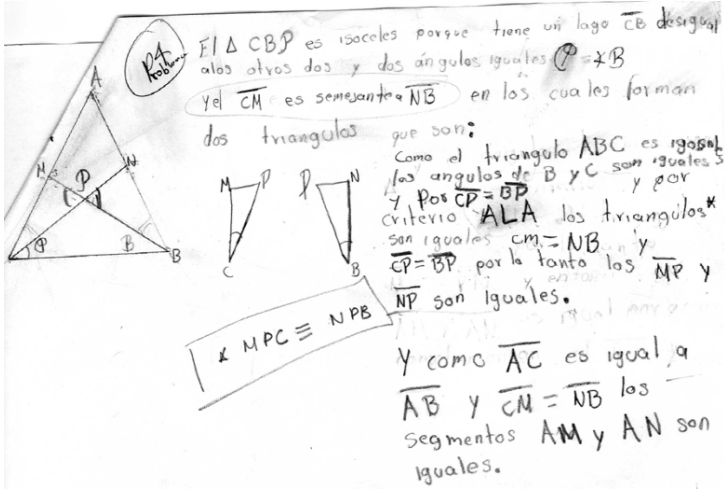 P4
Problema
El Δ CBP es isoceles porque tiene un lago CB desigual
alos otros dos y dos ángulos iguales φ = ∡B
y el CM es semesante a NB en los cuales forman
dos triangulos que son:
Como el triangulo ABC es
los angulos de B y C son iguales
y por CP = BP y por
criterio ALA los triangulos*
son iguales CM = NB y
CP = BP por lo tanto los MP y
NP son iguales.
* MPC ≡ NPB
Y como AC es igual a
AB y CM = NB los
segmentos AM y AN son
iguales.
A
M
P
N
φ
B
B
M P
C
P N
B